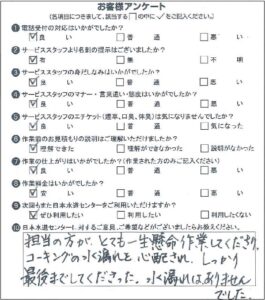 お客様アンケート
(各項目につきまして、該当する□の中に✓をご記入ください。)
❶電話受付の対応はいかがでしたか?
☑良い □普通 □悪い
❷サービススタッフより名刺の提示はございましたか?
☑有 □無 □不明
❸サービススタッフの身だしなみはいかがでしたか?
☑良い □普通 □悪い
❹サービススタッフのマナー・言葉遣い・態度はいかがでしたか?
☑良い □普通 □悪い
❺サービススタッフのエチケット(煙草、口臭、体臭)は気になりませんでしたか?
☑良い □普通 □気になった
❻作業前のお見積もりの説明はご理解いただけましたか?
☑理解できた □理解ができなかった □説明がなかった
❼作業の仕上がりはいかがでしたか?(作業された方のみご記入ください)
☑良い □普通 □悪い
❽作業料金はいかがでしたか?
☑安い □普通 □悪い
❾次回もまた日本水道センターをご利用いただけますか?
☑ぜひ利用したい □利用したい □利用したくない
❿日本水道センターに対するご意見、ご希望などがございましたらお教えください。
担当の方が、とても一生懸命作業してくださり、
コーキングの水漏れも心配され、しっかり
最後までしてくださった。水漏れはありません
でした。